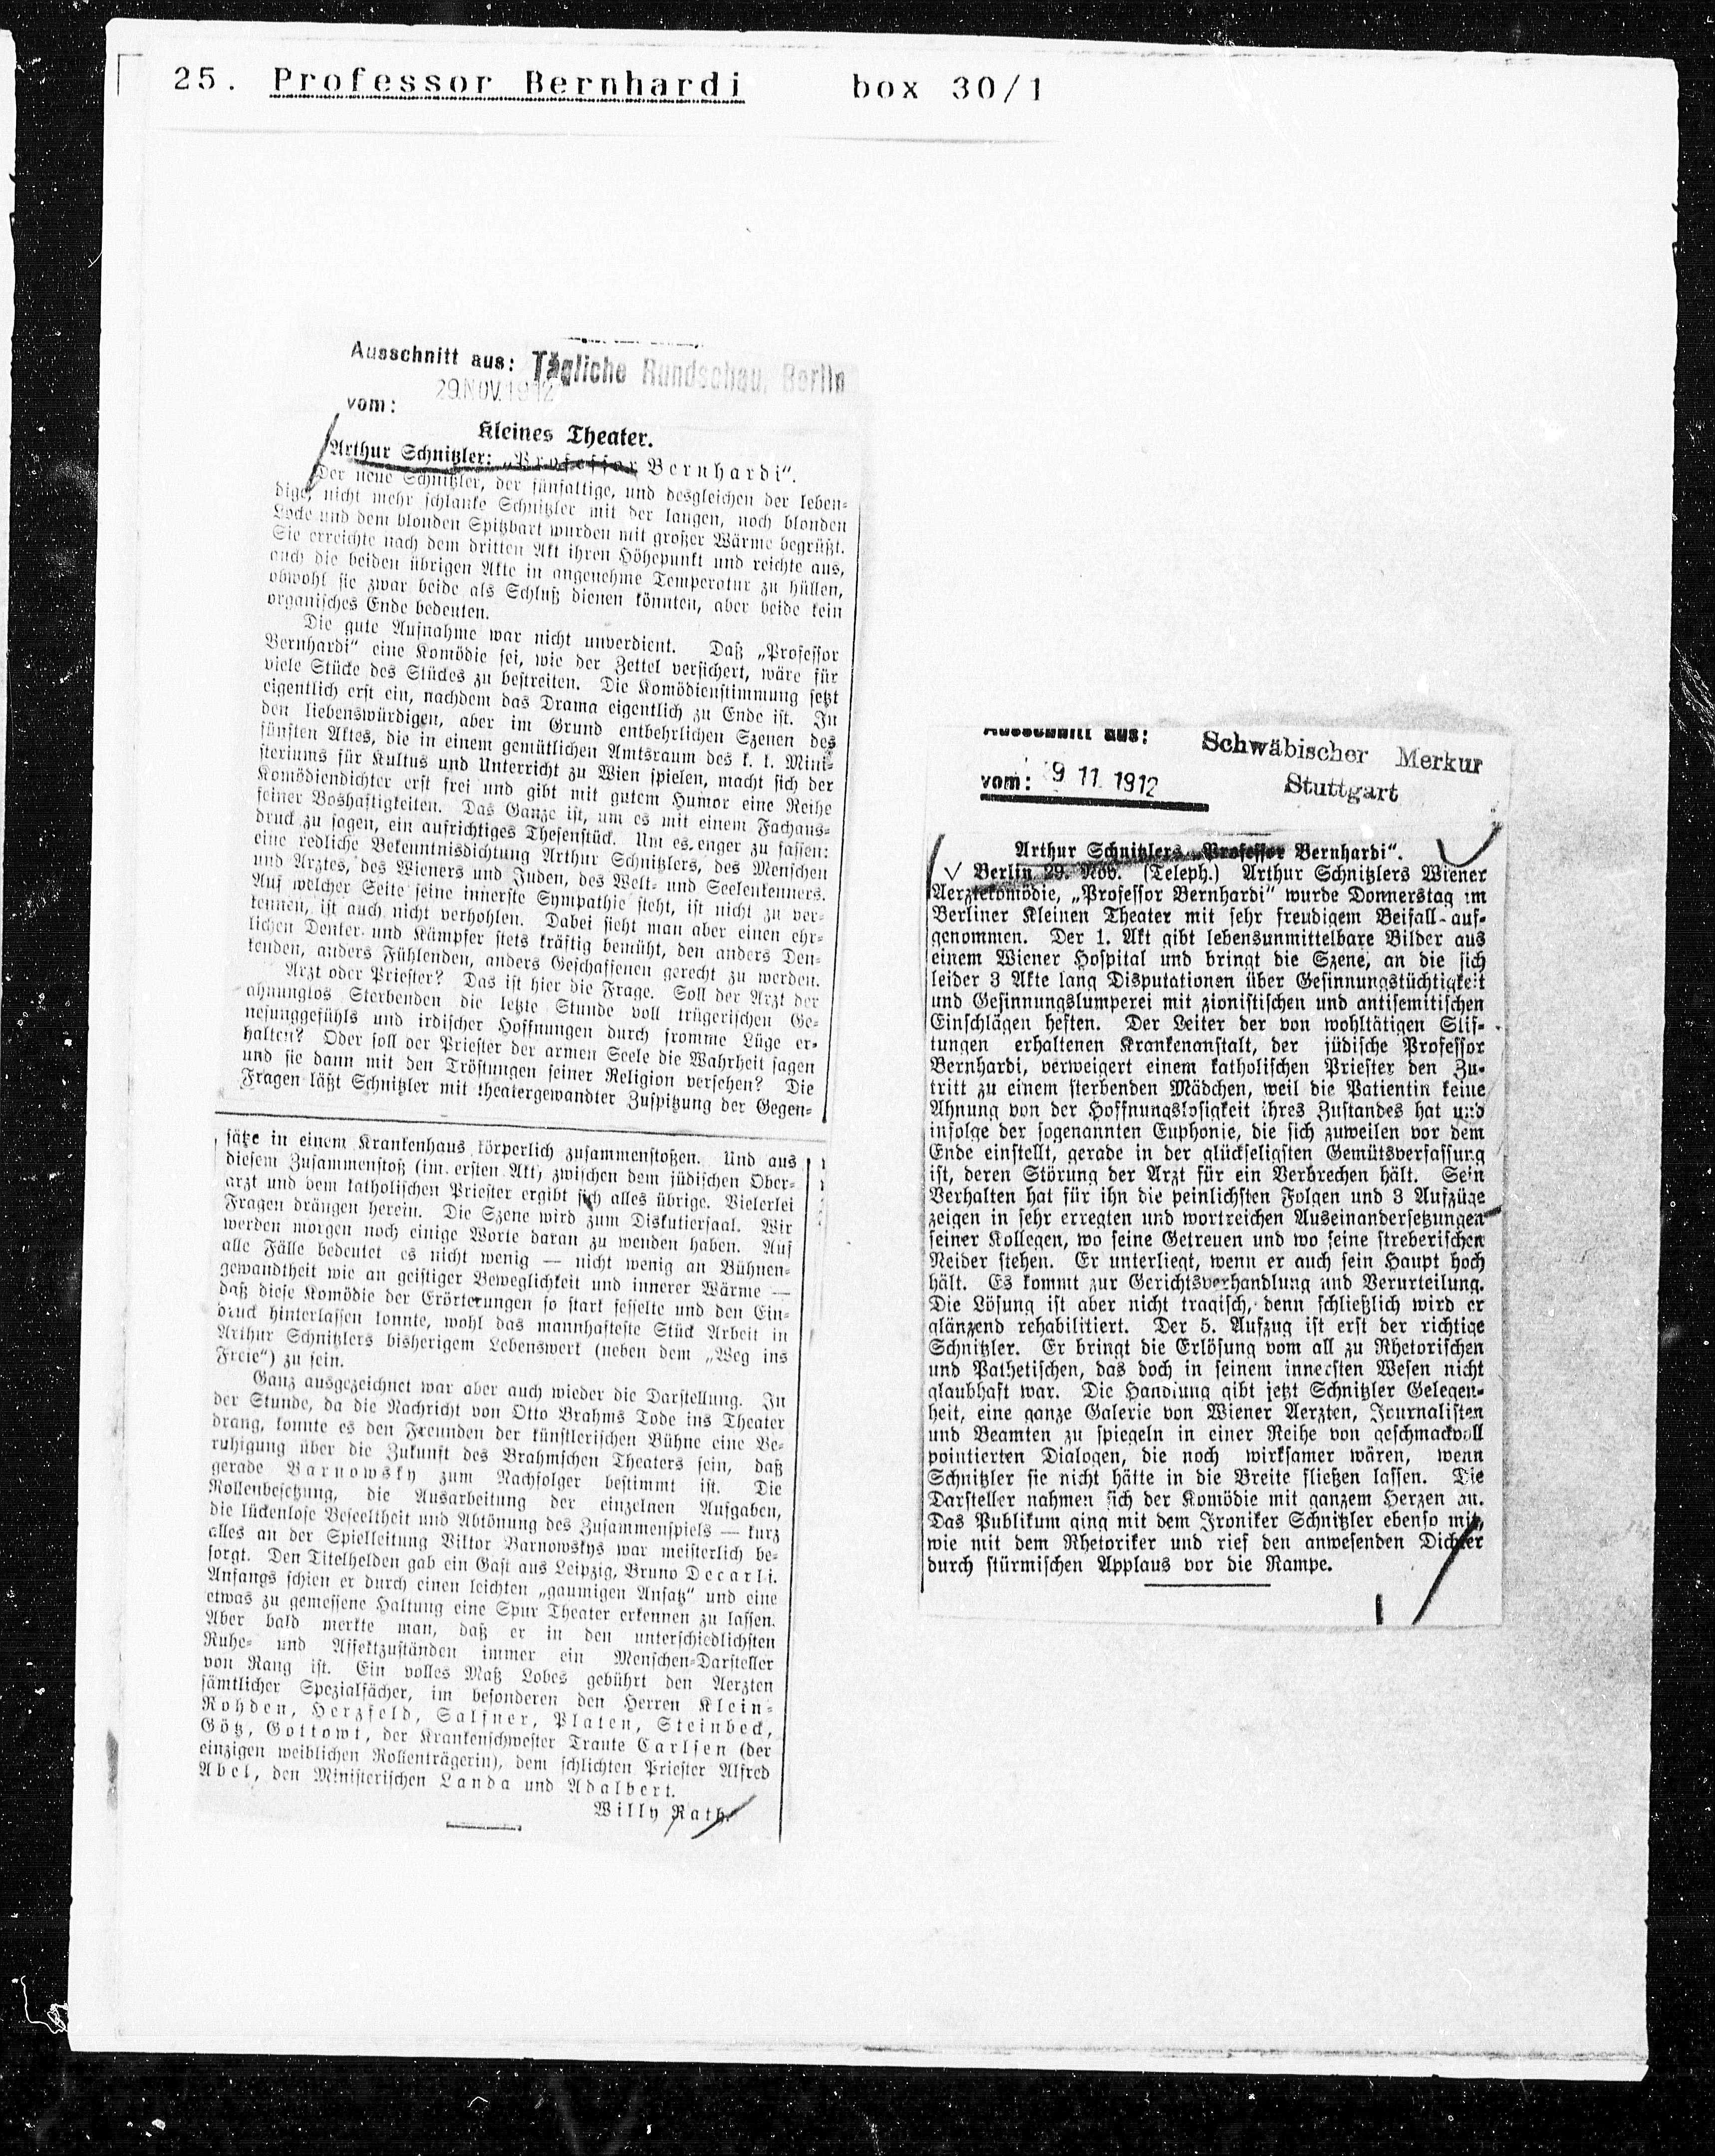 25. Professor Bernhardi box 30/1
Ausschnitt aus: Tägliche Rundschau, Berlin
29. NOV. 1912
vom:
Kleines Theater.
Arthur Schnitzler: „Professor Bernhardi“.
Der neue Schnitzler, der fünfaktige, und desgleichen der leben-
dige, nicht mehr schlanke Schnitzler mit der langen, noch blonden
Locke und dem blonden Spitzbart wurden mit großer Wärme begrüßt.
Sie erreichte nach dem dritten Akt ihren Höhepunkt und reichte aus,
auch die beiden übrigen Akte in angenehme Temperatur zu hüllen,
obwohl sie zwar beide als Schluß dienen könnten, aber beide kein
organisches Ende bedeuten.
Die gute Aufnahme war nicht unverdient. Daß „Professor
Bernhardi“ eine Komödie sei, wie der Zettel versichert, wäre für
viele Stücke des Stückes zu bestreiten. Die Komödienstimmung setzt
eigentlich erst ein, nachdem das Drama eigentlich zu Ende ist. In
den liebenswürdigen, aber im Grund entbehrlichen Szenen des
fünften Aktes, die in einem gemütlichen Amtsraum des k. k. Mini-
steriums für Kultus und Unterricht zu Wien spielen, macht sich der
Komödiendichter erst frei und gibt mit gutem Humor eine Reihe
seiner Boshaftigkeiten. Das Ganze ist, um es mit einem Fachaus-
druck zu sagen, ein aufrichtiges Thesenstück. Um es enger zu fassen:
eine redliche Bekenntnisdichtung Arthur Schnitzlers, des Menschen
und Arztes, des Wieners und Juden, des Welt- und Seelenkenners.
Auf welcher Seite seine innerste Sympathie steht, ist nicht zu ver-
kennen, ist auch nicht verhohlen. Dabei sieht man aber einen ehr-
lichen Denker und Kämpfer stets kräftig bemüht, den anders Den-
kenden, anders Fühlenden, anders Geschaffenen gerecht zu werden.
Arzt oder Priester? Das ist hier die Frage. Soll der Arzt der
ahnunglos Sterbenden die letzte Stunde voll trügerischen Ge-
nesunggefühls und irdischer Hoffnungen durch fromme Lüge er-
halten? Oder soll der Priester der armen Seele die Wahrheit sagen
und sie dann mit den Tröstungen seiner Religion versehen? Die
Fragen läßt Schnitzler mit theatergewandter Zuspitzung der Gegen-
sätze in einem Krankenhaus körperlich zusammenstoßen. Und aus
diesem Zusammenstoß (im ersten Akt) zwischen dem jüdischen Ober-
arzt und dem katholischen Priester ergibt sich alles übrige. Vielerlei
Fragen drängen herein. Die Szene wird zum Diskutiersaal. Wir
werden morgen noch einige Worte daran zu wenden haben. Auf
alle Fälle bedeutet es nicht wenig — nicht wenig an Bühnen-
gewandtheit wie an geistiger Beweglichkeit und innerer Wärme —
daß diese Komödie der Erörterungen so stark fesselte und den Ein-
druck hinterlassen konnte, wohl das mannhafteste Stück Arbeit in
Arthur Schnitzlers bisherigem Lebenswerk (neben dem „Weg ins
Freie“) zu sein.
Ganz ausgezeichnet war aber auch wieder die Darstellung. In
der Stunde, da die Nachricht von Otto Brahms Tode ins Theater
drang, konnte es den Freunden der künstlerischen Bühne eine Be-
ruhigung über die Zukunft des Brahmschen Theaters sein, daß
gerade Barnowsky zum Nachfolger bestimmt ist. Die
Rollenbesetzung, die Ausarbeitung der einzelnen Aufgaben,
die lückenlose Beseeltheit und Abtönung des Zusammenspiels — kurz
alles an der Spielleitung Viktor Barnowskys war meisterlich be-
sorgt. Den Titelhelden gab ein Gast aus Leipzig, Bruno Decarli.
Anfangs schien er durch einen leichten „gaumigen Ansatz“ und eine
etwas zu gemessene Haltung eine Spur Theater erkennen zu lassen.
Aber bald merkte man, daß er in den unterschiedlichsten
Ruhe- und Affektzuständen immer ein Menschen-Darsteller
von Rang ist. Ein volles Maß Lobes gebührt den Aerzten
sämtlicher Spezialfächer, im besonderen den Herren Klein-
Rohden, Herzfeld, Salfner, Platen, Steinbeck,
Götz, Gottowt, der Krankenschwester Traute Carlsen (der
einzigen weiblichen Rollenträgerin), dem schlichten Priester Alfred
Abel, den Ministerischen Landa und Adalbert.
Willy Rath.
Ausschnitt aus: Schwäbischer Merkur
vom: 9 11. 1912 Stuttgart
Arthur Schnitzlers „Professor Bernhardi“.
Berlin 29. Nov. (Teleph.) Arthur Schnitzlers Wiener
Aerztekomödie, „Professor Bernhardi“ wurde Donnerstag im
Berliner Kleinen Theater mit sehr freudigem Beifall auf-
genommen. Der 1. Akt gibt lebensunmittelbare Bilder aus
einem Wiener Hospital und bringt die Szene, an die sich
leider 3 Akte lang Disputationen über Gesinnungstüchtigkeit
und Gesinnungslumperei mit zionistischen und antisemitischen
Einschlägen heften. Der Leiter der von wohltätigen Stif-
tungen erhaltenen Krankenanstalt, der jüdische Professor
Bernhardi, verweigert einem katholischen Priester den Zu-
tritt zu einem sterbenden Mädchen, weil die Patientin keine
Ahnung von der Hoffnungslosigkeit ihres Zustandes hat und
infolge der sogenannten Euphonie, die sich zuweilen vor dem
Ende einstellt, gerade in der glückseligsten Gemütsverfassung
ist, deren Störung der Arzt für ein Verbrechen hält. Sein
Verhalten hat für ihn die peinlichsten Folgen und 3 Aufzüge
zeigen in sehr erregten und wortreichen Auseinandersetzungen
seiner Kollegen, wo seine Getreuen und wo seine streberischen
Neider stehen. Er unterliegt, wenn er auch sein Haupt hoch
hält. Es kommt zur Gerichtsverhandlung und Verurteilung.
Die Lösung ist aber nicht tragisch, denn schließlich wird er
glänzend rehabilitiert. Der 5. Aufzug ist erst der richtige
Schnitzler. Er bringt die Erlösung vom all zu Rhetorischen
und Pathetischen, das doch in seinem innersten Wesen nicht
glaubhaft war. Die Handlung gibt jetzt Schnitzler Gelegen-
heit, eine ganze Galerie von Wiener Aerzten, Journalisten
und Beamten zu spiegeln in einer Reihe von geschmackvoll
pointierten Dialogen, die noch wirksamer wären, wenn
Schnitzler sie nicht hätte in die Breite fließen lassen. Die
Darsteller nahmen sich der Komödie mit ganzem Herzen an.
Das Publikum ging mit dem Ironiker Schnitzler ebenso mit,
wie mit dem Rhetoriker und rief den anwesenden Dichter
durch stürmischen Applaus vor die Rampe.